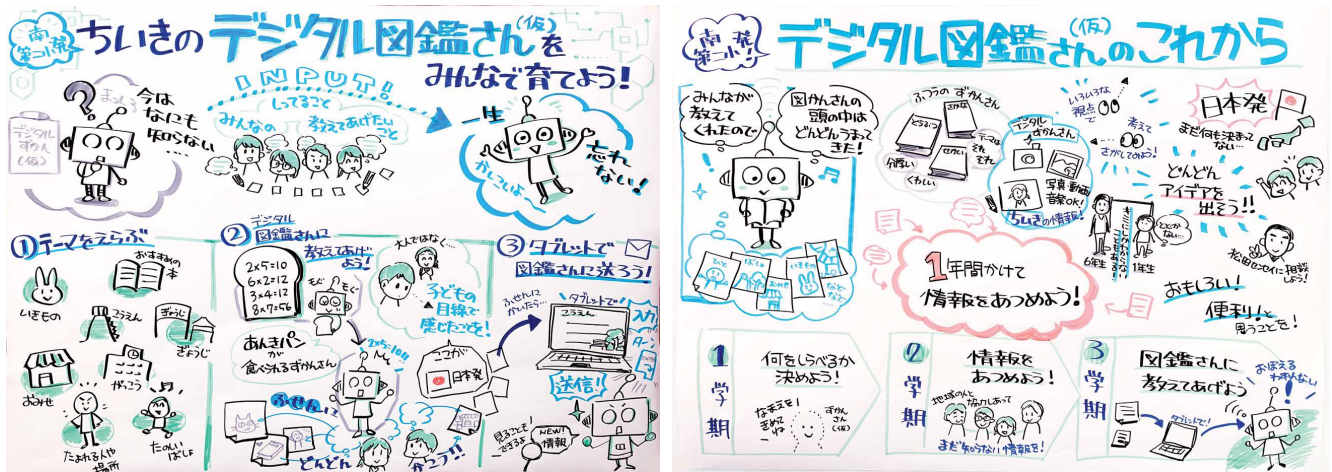 南発
第二小
ちいきのデジタル図鑑さん(仮)を
みんなで育てよう!
?
まっしろ
今は
なにも
知らない…
デジタル
ずかん
(仮)
INPUT!
しってること
みんなの
教えてあげたい
こと
一生
忘れ
ない!
かしこいよ
①テーマをえらぶ
いきもの
おすすめの
本
こうえん
ぎょうじ
ぎょうじ
おみせ
がっこう
たよれる人や
場所
たのしい
ばしょ
②デジタル
図鑑さんに
教えてあげ
よう!
2×5=10
6×2=12
3×4=12
8×7=56
もぐ
もぐ
あんきパン
が
食べられるずかんさん
2×5=10!!
大人ではなく…
子どもの
目線で
感じたことを!
ここが
日本発
ふせんに
どんどん
かこう!!
③タブレットで
図鑑さんに送ろう!
ふせんに
かいたら…
タブレットで
こうえん
入力
送信!
見ることも
できるよ
NEW!
情報
南発
第二小!
デジタル図鑑さん(仮)のこれから
みんなが
教えて
くれたので
図かんさんの
頭の中は
どんどんうまって
きた!
!
ひと
ばしょ
おみせ
いきもの
など
など
ふつうの ずかんさん
どうぶつ
さかな
せかい
テーマは
それ
ぞれ
分厚い
くわしい
デジタル
ずかんさん
写真・動画
音楽OK!
ちいきの情報!
いろいろな
視点
で
考えて
さがしてみよう!
日本発
まだ何も決まって
ない…
どんどん
アイデアを
出そう!!
キミにしかわからない
こともある!
6年生
1年生
とどか
ない…
松田センセイに相談
しよう!
おもしろい!
便利!と
思うことを!
1年間かけて
情報をあつめよう!
1学期
何をしらべるか
決めよう!
なまえを!
きめて
ずかん
さん
(仮)
2学期
情報を
あつめよう!
地域の人と
なかよくなって
まだ知らない情報を!
3学期
図鑑さんに
教えてあげよう
タブレットで!
おぼえる
わすれない!